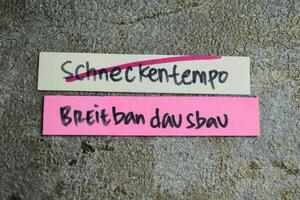 Schneckentempo
Breitbandausbau